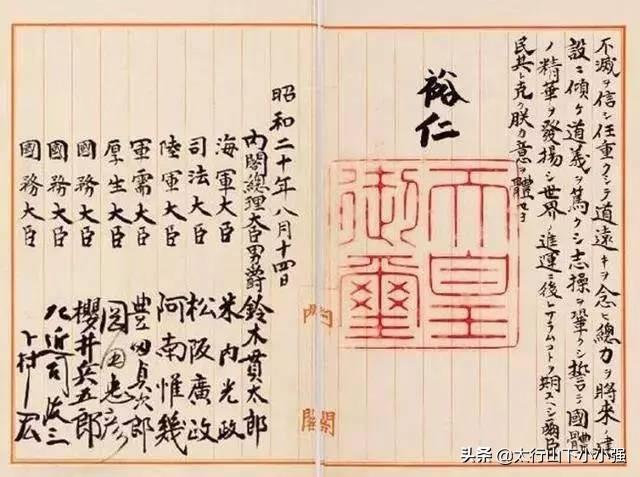 不滅ヲ信シ任重クシテ道遠キヲ念ヒ總力ヲ將來ノ建
設ニ傾ケ道義ヲ篤クシ志操ヲ鞏クシ誓テ國體
ノ精華ヲ發揚シ世界ノ進運ニ後レサラムコトヲ期スヘシ爾臣
民其レ克ク朕カ意ヲ體セヨ
裕仁
天皇
御璽
内閣
昭和二十年八月十四日
内閣總理大臣男爵 鈴木貫太郎
海軍大臣 米内光政
司法大臣 松阪廣政
陸軍大臣 阿南惟幾
軍需大臣 豊田貞次郎
厚生大臣 岡田忠彦
國務大臣 櫻井兵五郎
國務大臣 左近司政三
國務大臣 下村宏
头条 @太行山下小小强